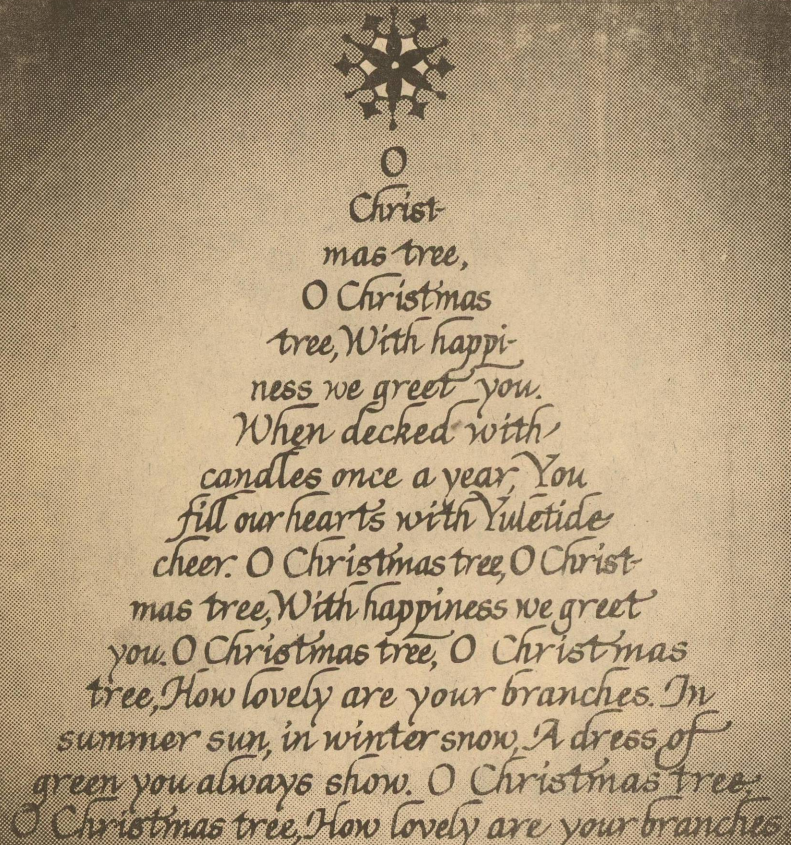 O
Christ-
mas tree,
O Christmas
tree, With happi-
ness we greet you.
When decked with
candles once a year, You
fill our hearts with Yuletide
cheer. O Christmas tree, O Christ-
mas tree, With happiness we greet
you. O Christmas tree, O Christmas
tree, How lovely are your branches. In
summer sun, in winter snow, A dress of
green you always show. O Christmas tree,
O Christmas tree, How lovely are your branches.